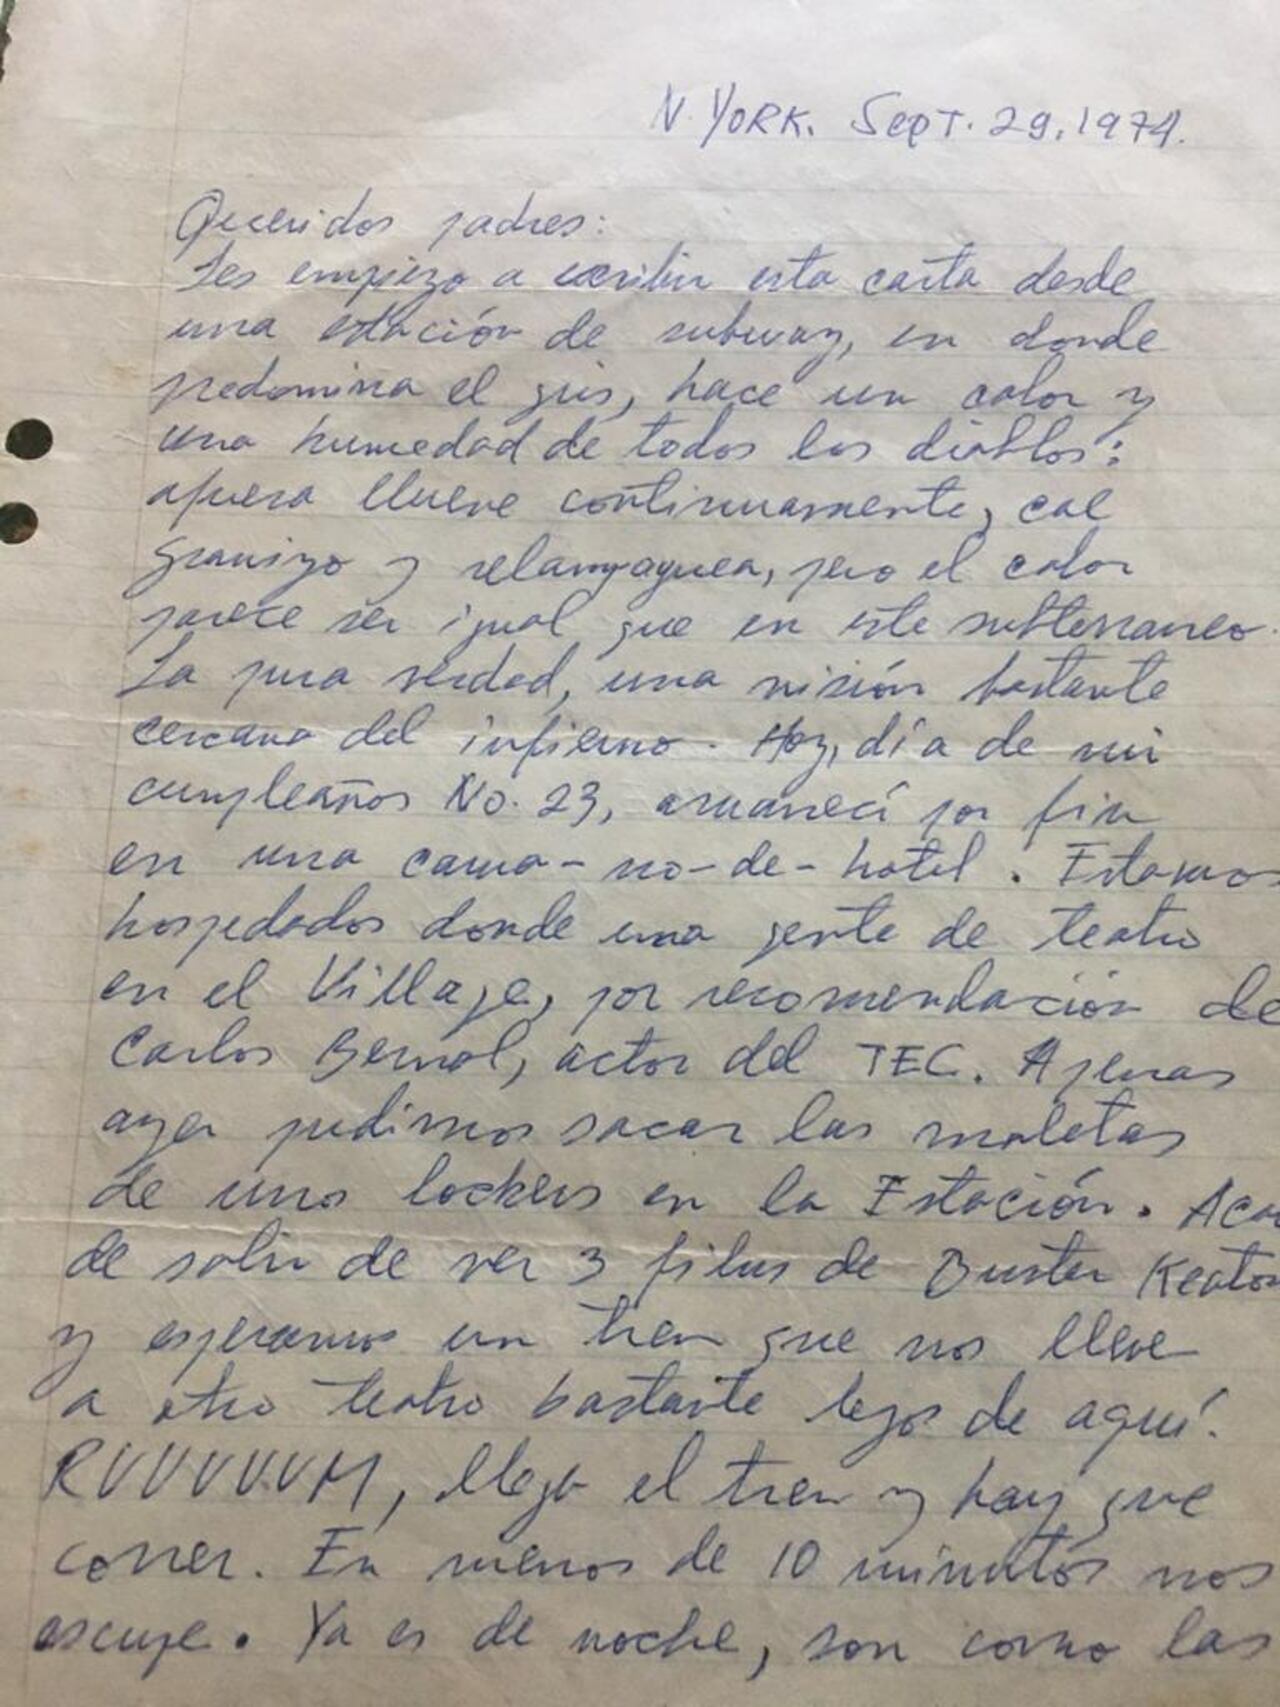 N. YORK. SEPT. 29, 1974.
Queridos padres:
Les empiezo a escribir esta carta desde
una estación de subway, en donde
predomina el gris, hace un calor y
una humedad de todos los diablos:
afuera llueve continuamente, cae
granizo y relampaguea, pero el calor
parece ser igual que en este subterraneo.
La pura verdad, una visión bastante
cercana del infierno. Hoy, día de mi
cumpleaños No. 23, amanecí por fin
en una cama-no-de-hotel. Estamos
hospedados donde una gente de teatro
en el Village, por recomendación de
Carlos Bernal, actor del TEC. Apenas
ayer pudimos sacar las maletas
de unos lockers en la Estación. Aca
de salir de ver 3 films de Buster Keaton
y esperamos un tren que nos lleve
a otro teatro bastante lejos de aquí.
RUUUUUM, llega el tren y hay que
correr. En menos de 10 minutos nos
escupe. Ya es de noche, son como las